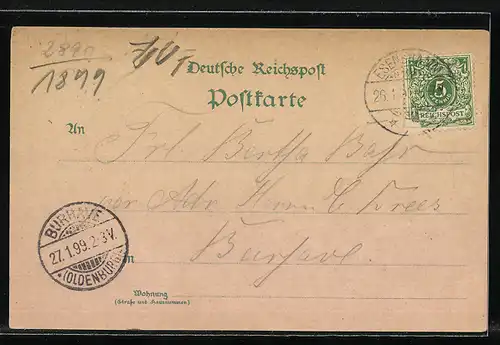 2890
1899
Deutsche Reichspost
Postkarte
5
REICHSPOST
26.1.
An
Frl. Bertha Bahr
per Adr. Herrn C Drees
in Burhave.
BURHAVE
27.1.99.2-3V.
*(OLDENBURG)*
Wohnung
(Straße und Hausnummer)